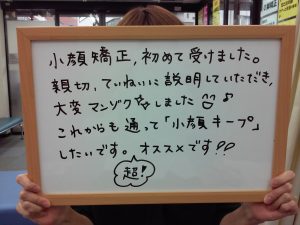 小顔矯正,初めて受けました。
親切、ていねいに説明していただき、
大変マンゾクしました♪
これからも通って「小顔キープ」
したいです。オススメです!!
超!